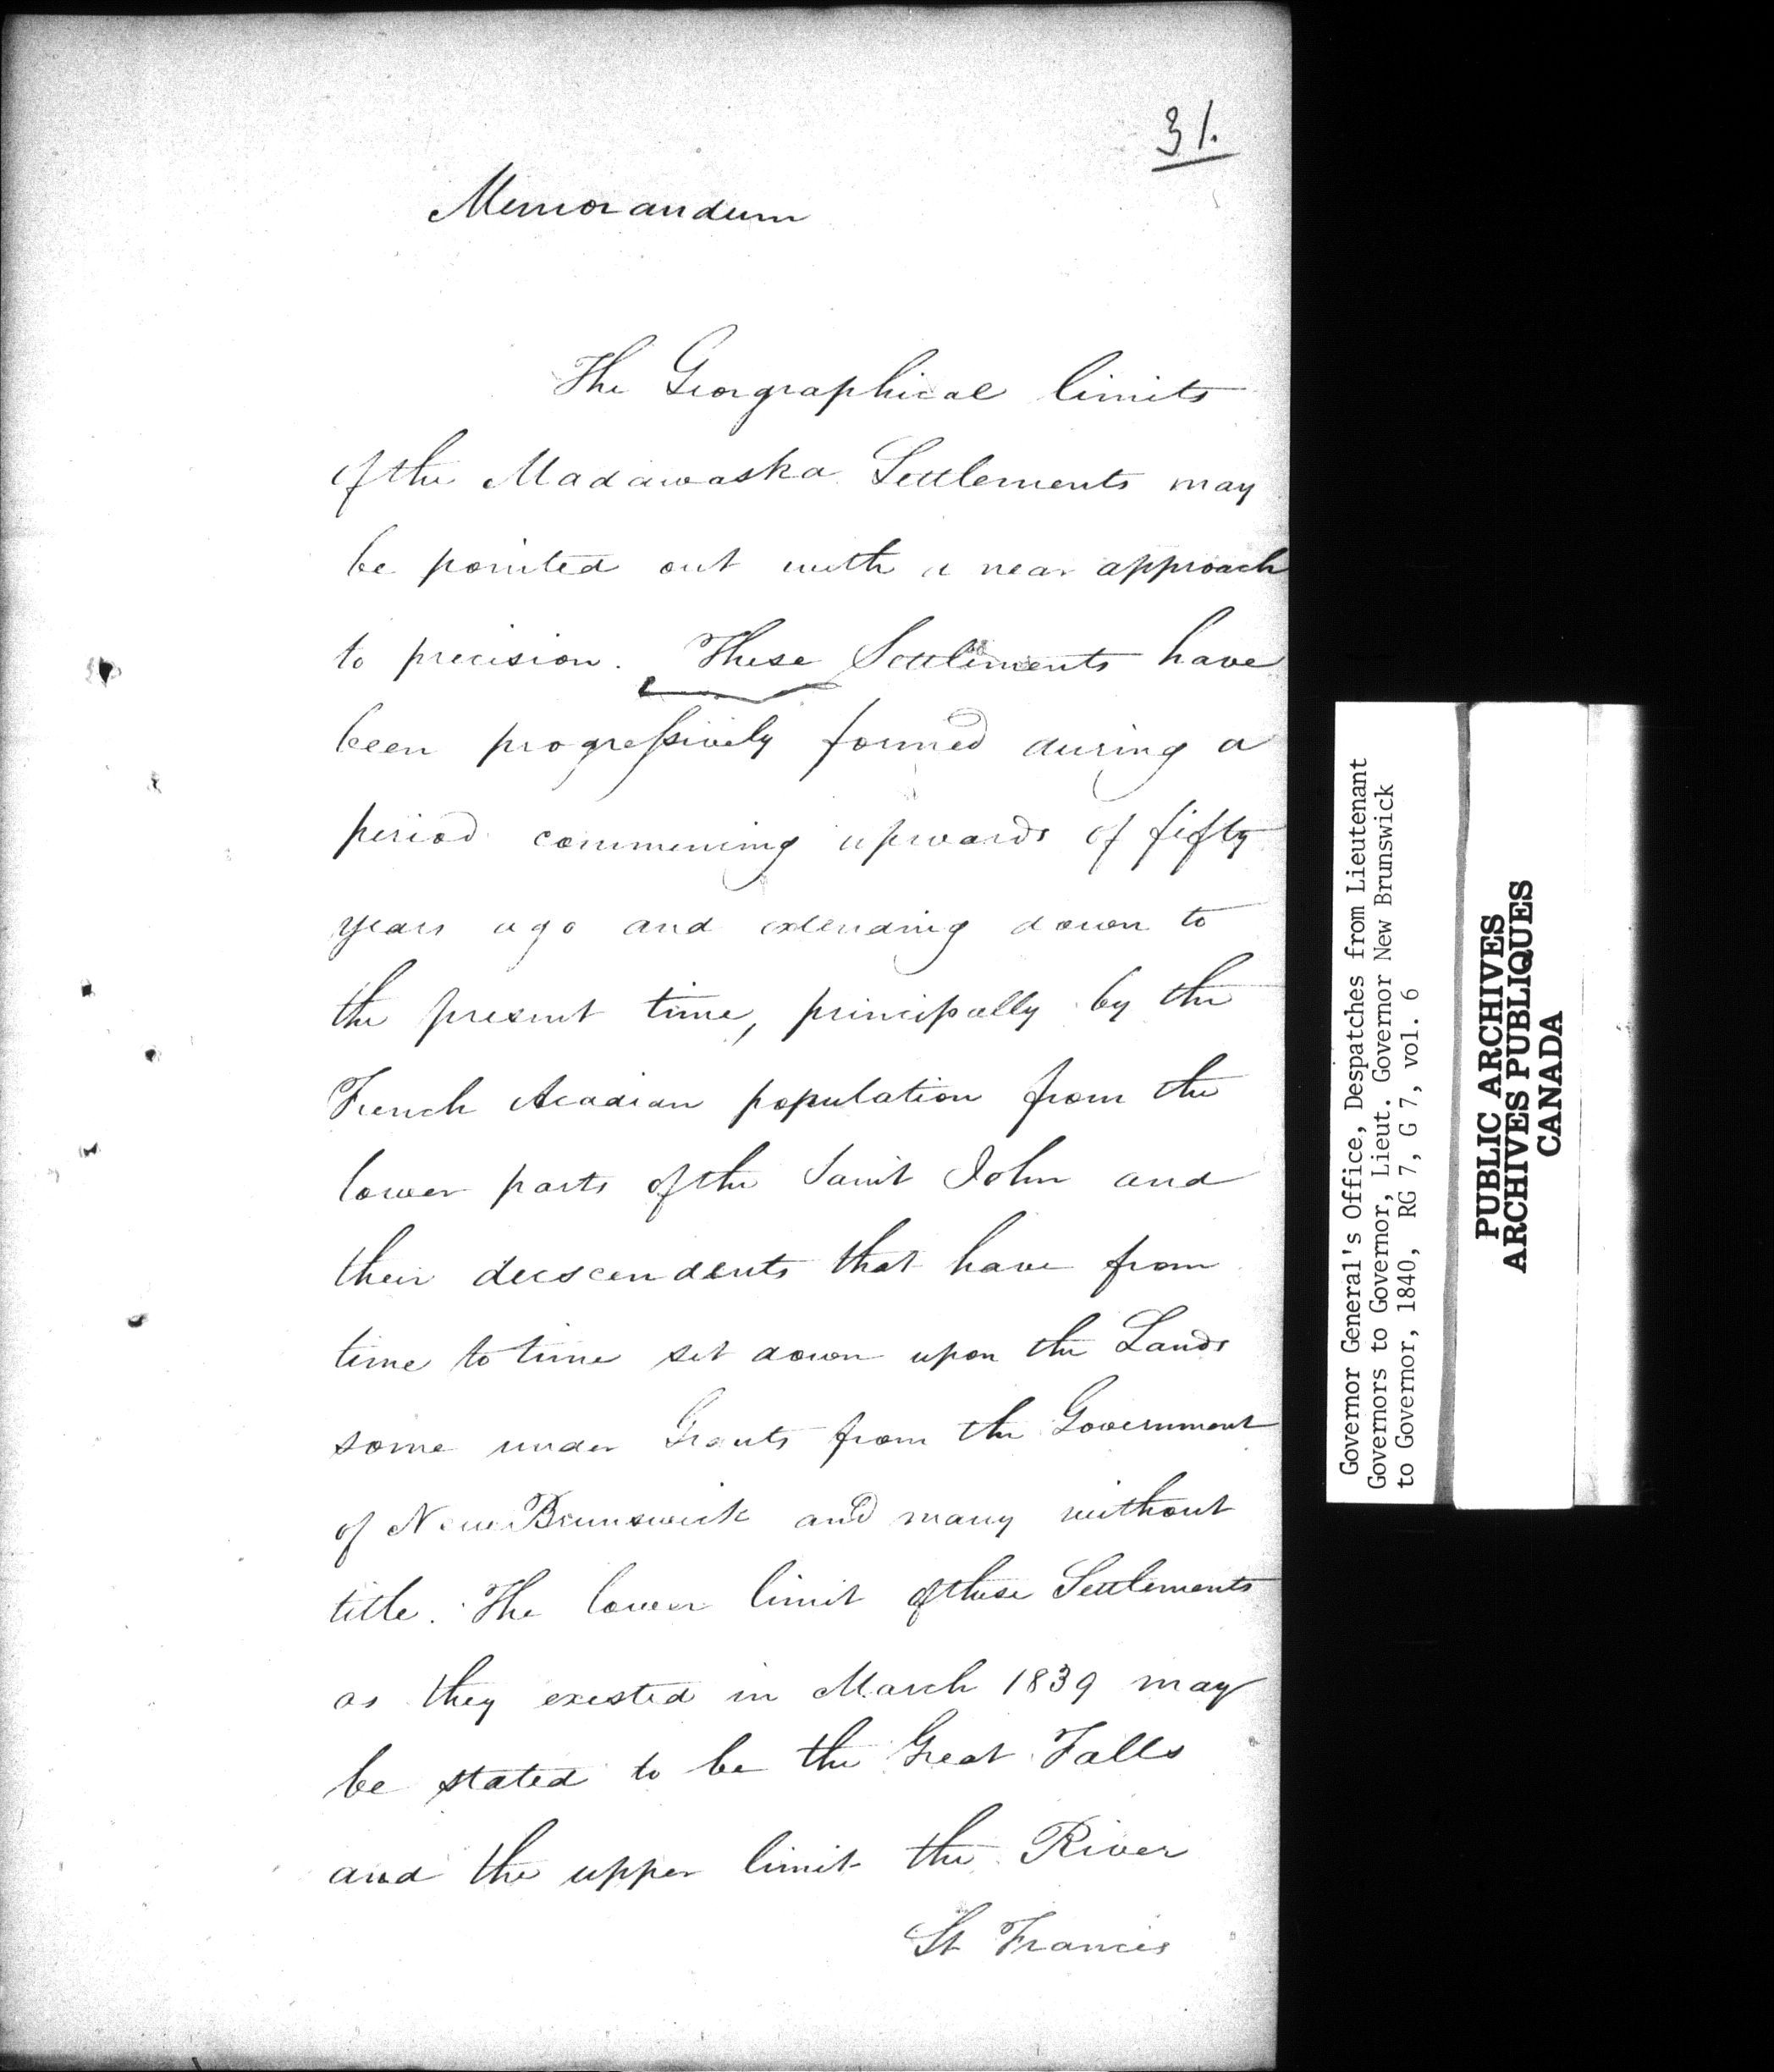 31.
Memorandum
The Georgraphical limits
of the Madawaska Settlements may
be pointed out with a near approach
to precision. These Settlements have
been progressively formed during a
period commencing upwards of fifty
years ago and extending down to
the present time, principally by the
French Acadian population from the
lower parts of the Saint John and
their decscendents that have from
time to time set down upon the Lands
some under Grants from the Government
of New Brunswick and many without
title. The lower limit of these Settlements
as they existed in March 1839 may
be stated to be the Great Falls
and the upper limit the River
St Francis
Governor General's Office, Despatches from Lieutenant
Governors to Governor, Lieut. Governor New Brunswick
to Governor, 1840, RG 7, G 7, vol. 6
PUBLIC ARCHIVES
ARCHIVES PUBLIQUES
CANADA